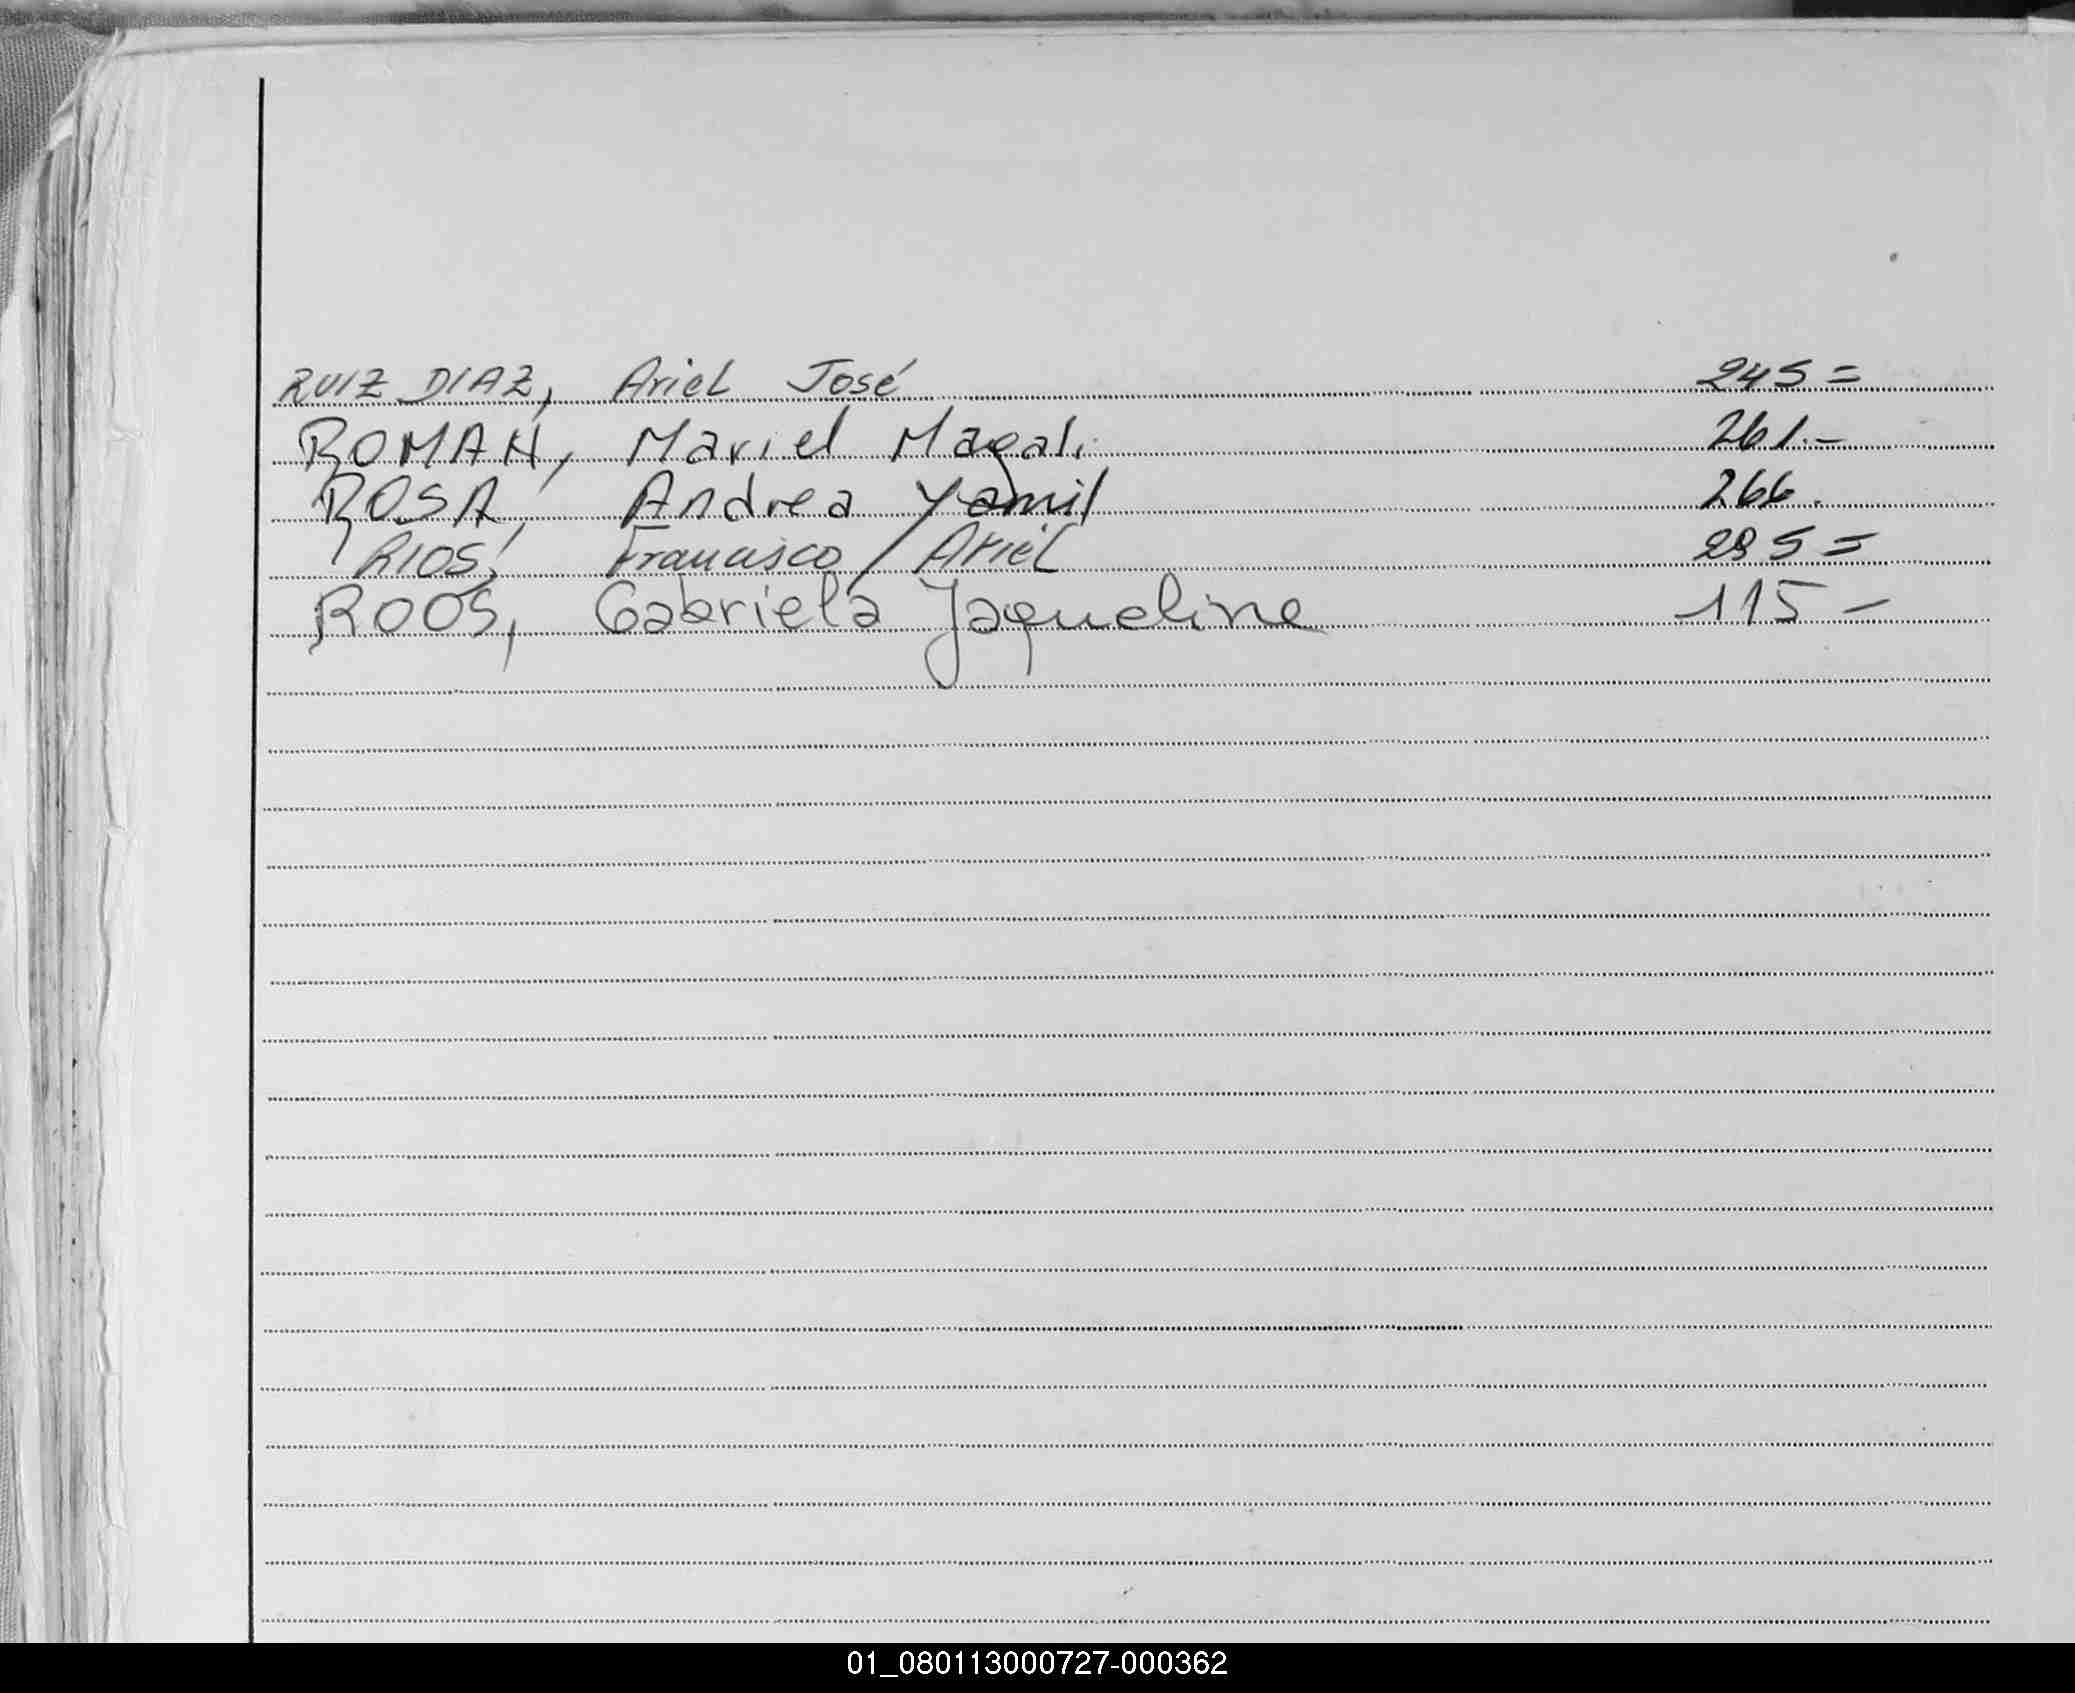 RUIZ DIAZ, Ariel José 245=
ROMAN, Mariel Magali 261.-
ROSA, Andrea Yamil 266.
RIOS, Francisco Ariel 295=
ROOS, Gabriela Jaqueline 115-
01_080113000727-000362